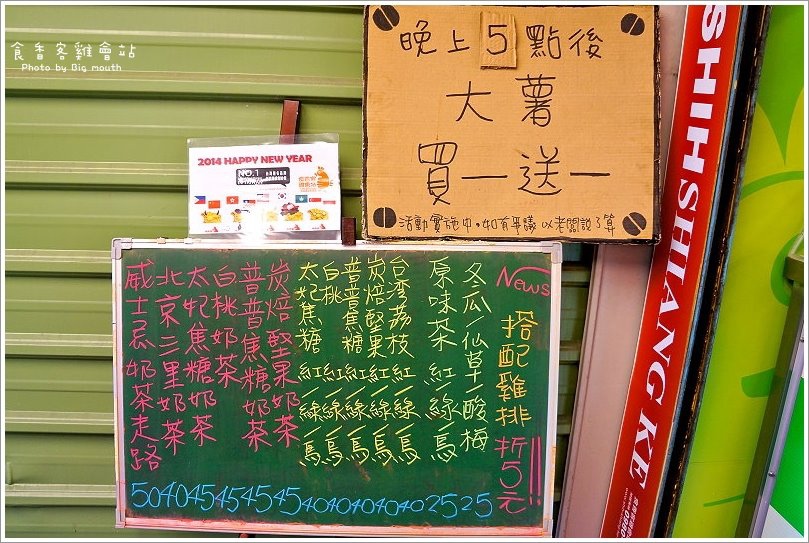 食香客雞會站
Photo by Big mouth
晚上5點後
大薯
買一送一
活動實施中。如有爭議 以老闆說了算
2014 HAPPY NEW YEAR
NO.1
SHIHSHIANG KE
News
搭配雞排折5元!!
冬瓜/仙草/酸梅 25
原味茶 紅/綠/烏 25
台湾荔枝 紅/綠/烏 40
炭焙堅果 紅/綠/烏 40
普普焦糖 紅/綠/烏 40
白桃 紅/綠/烏 40
太妃焦糖 紅/綠/烏 40
炭焙堅果奶茶 45
普普焦糖奶茶 45
白桃奶茶 45
太妃焦糖奶茶 45
北京三里奶茶 40
威士忌奶茶走路 50